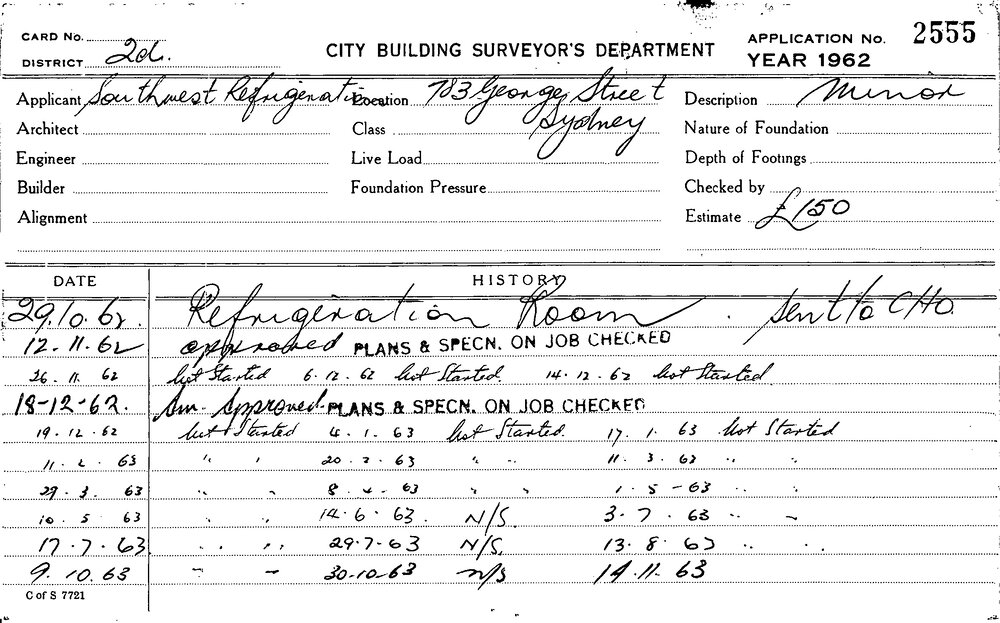 CARD No.
DISTRICT 2d.
CITY BUILDING SURVEYOR'S DEPARTMENT
APPLICATION No. 2555
YEAR 1962
Applicant Southwest Refrigeration Location 783 George Street Sydney Description Minor
Architect Class Nature of Foundation
Engineer Live Load Depth of Footings
Builder Foundation Pressure Checked by
Alignment Estimate £150
DATE HISTORY
29.10.62. Refrigeration Room. Sent to CHO
12.11.62 approved PLANS & SPECN. ON JOB CHECKED
26.11.62 Not Started 6.12.62 Not Started. 14.12.62 Not Started
18-12-62. Am. Approved. PLANS & SPECN. ON JOB CHECKED
19.12.62 Not Started 4.1.63 Not Started. 17.1.63 Not Started
11.2.63 " " 20.2.63 " " 11.3.63 " "
29.3.63 " " 8.4.63 " " 1-5-63 " "
10.5.63 " " 14.6.63. N/S. 3.7.63 " "
17.7.63 " " 29.7-63 N/S. 13.8.63 " "
9.10.63 " " 30.10.63 n/s 14.11.63
C of S 7721